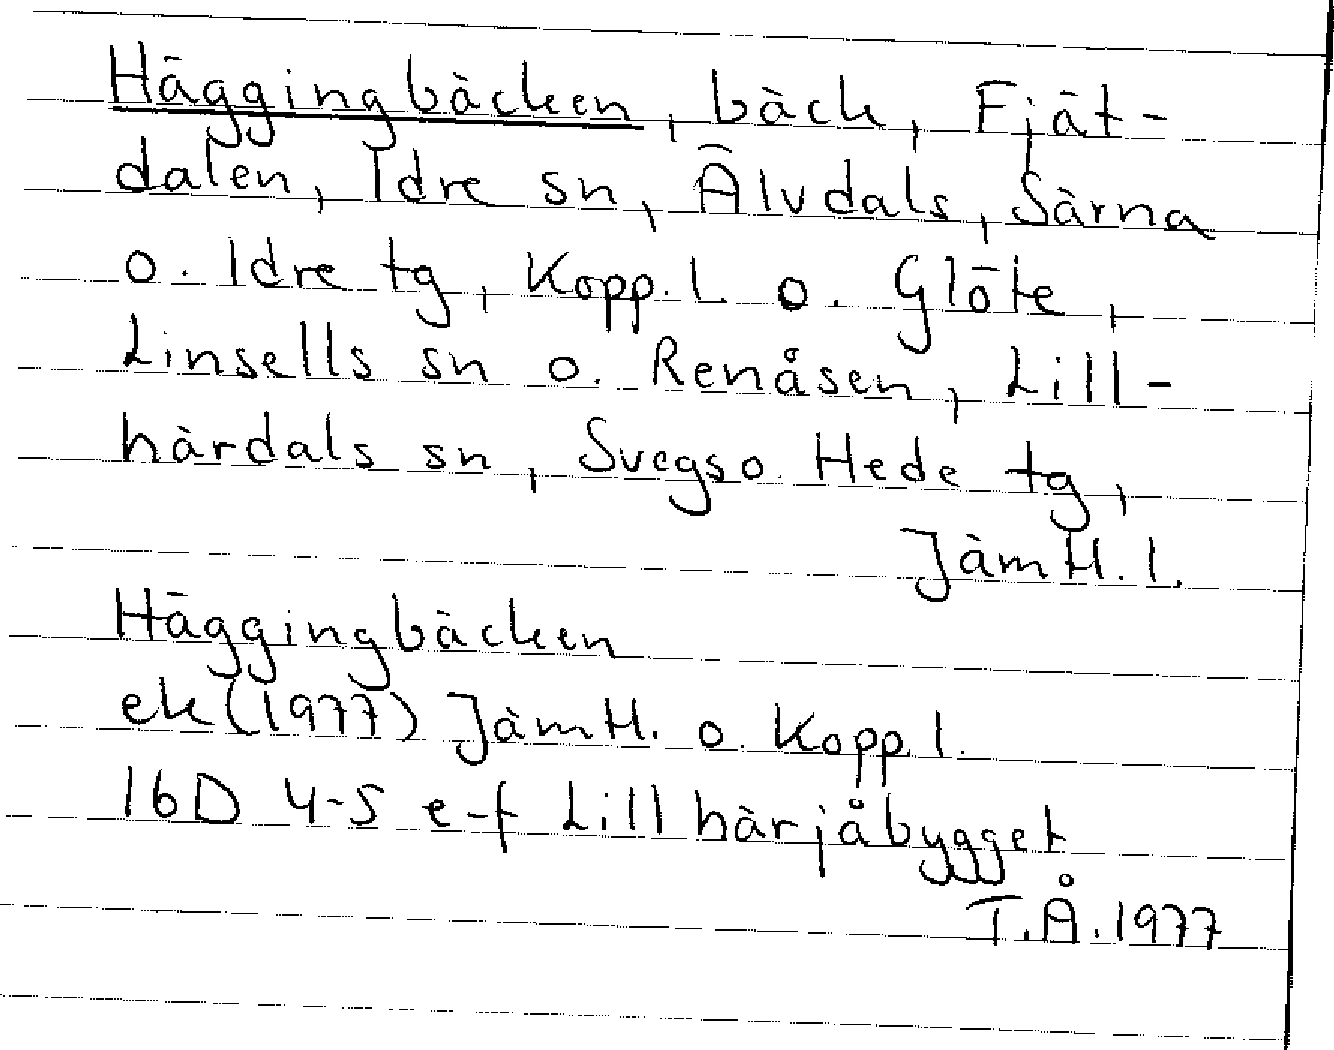 Häggingbäcken, bäck, Fjät-
dalen, Idre sn, Älvdals, Särna
o. Idre tg, Kopp. l. o. Glöte,
Linsells sn o. Renåsen, Lill-
härdals sn, Svegs o. Hede tg,
JämtH. l.
Häggingbäcken
ek (1977) JämtH. o. Kopp l.
16D 4-5 e-f Lillhärjåbygget
T.Å. 1977